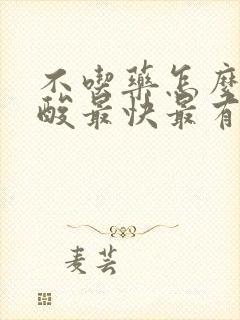 不喫藥怎麼
酸最快最有
麦芸